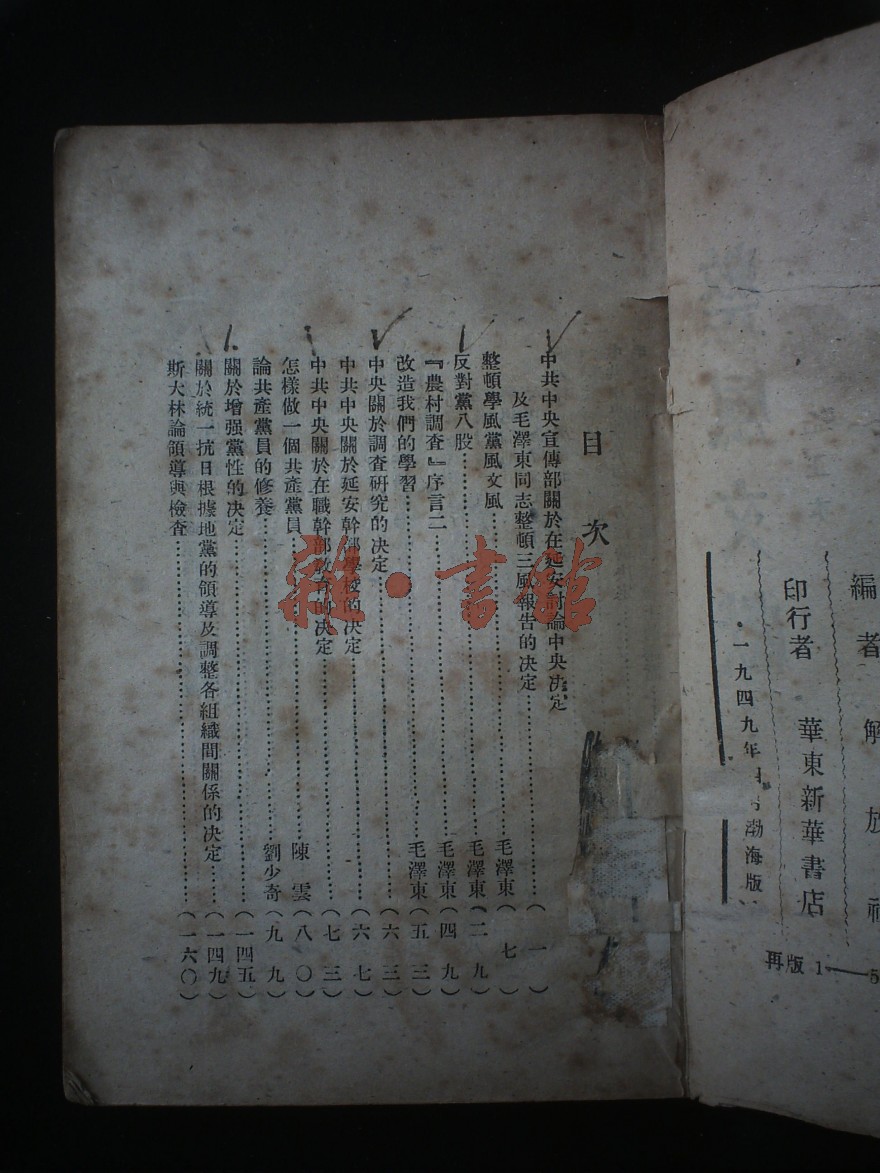 編者 解放社
印行者 華東新華書店
一九四九年 渤海版
再版 1——5
目次
中共中央宣傳部關於在延安討論中央決定
及毛澤東同志整頓三風報告的決定……(一)
整頓學風黨風文風……毛澤東(七)
反對黨八股……毛澤東(二九)
『農村調查』序言二……毛澤東(四九)
改造我們的學習……毛澤東(五三)
中央關於調查研究的決定……(六三)
中共中央關於延安幹部學校的決定……(六七)
中共中央關於在職幹部教育的決定……(七三)
怎樣做一個共產黨員……陳雲(八〇)
論共產黨員的修養……劉少奇(九九)
關於增强黨性的決定……(一四五)
關於統一抗日根據地黨的領導及調整各組織間關係的決定……(一四九)
斯大林論領導與檢查……(一六〇)